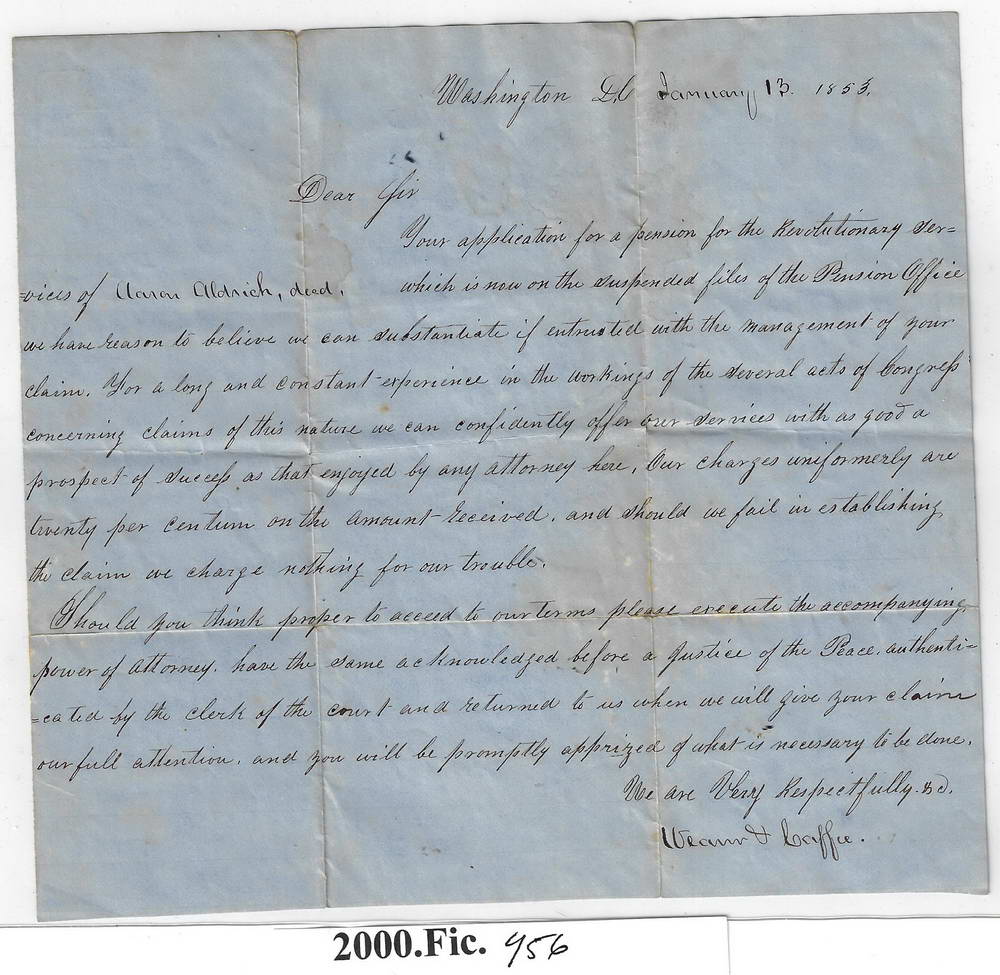 Washington D.C January 13. 1853.
Dear Sir
Your application for a pension for the Revolutionary Ser=
=vices of Aaron Aldrich, decd. which is now on the suspended files of the Pension Office
we have reason to believe we can substantiate if entrusted with the management of your
claim. For a long and constant experience in the workings of the several acts of Congress
concerning claims of this nature we can confidently offer our services with as good a
prospect of success as that enjoyed by any attorney here. Our charges uniformerly are
twenty per centum on the amount received. and should we fail in establishing
the claim we charge nothing for our trouble.
Should you think proper to acceed to our terms please execute the accompanying
power of attorney. have the same acknowledged before a Justice of the Peace. authenti=
=cated by the clerk of the court and returned to us when we will give your claim
our full attention. and you will be promptly apprized of what is necessary to be done.
We are Very Respectfully. &c.
& Caffee.
2000.Fic. 956